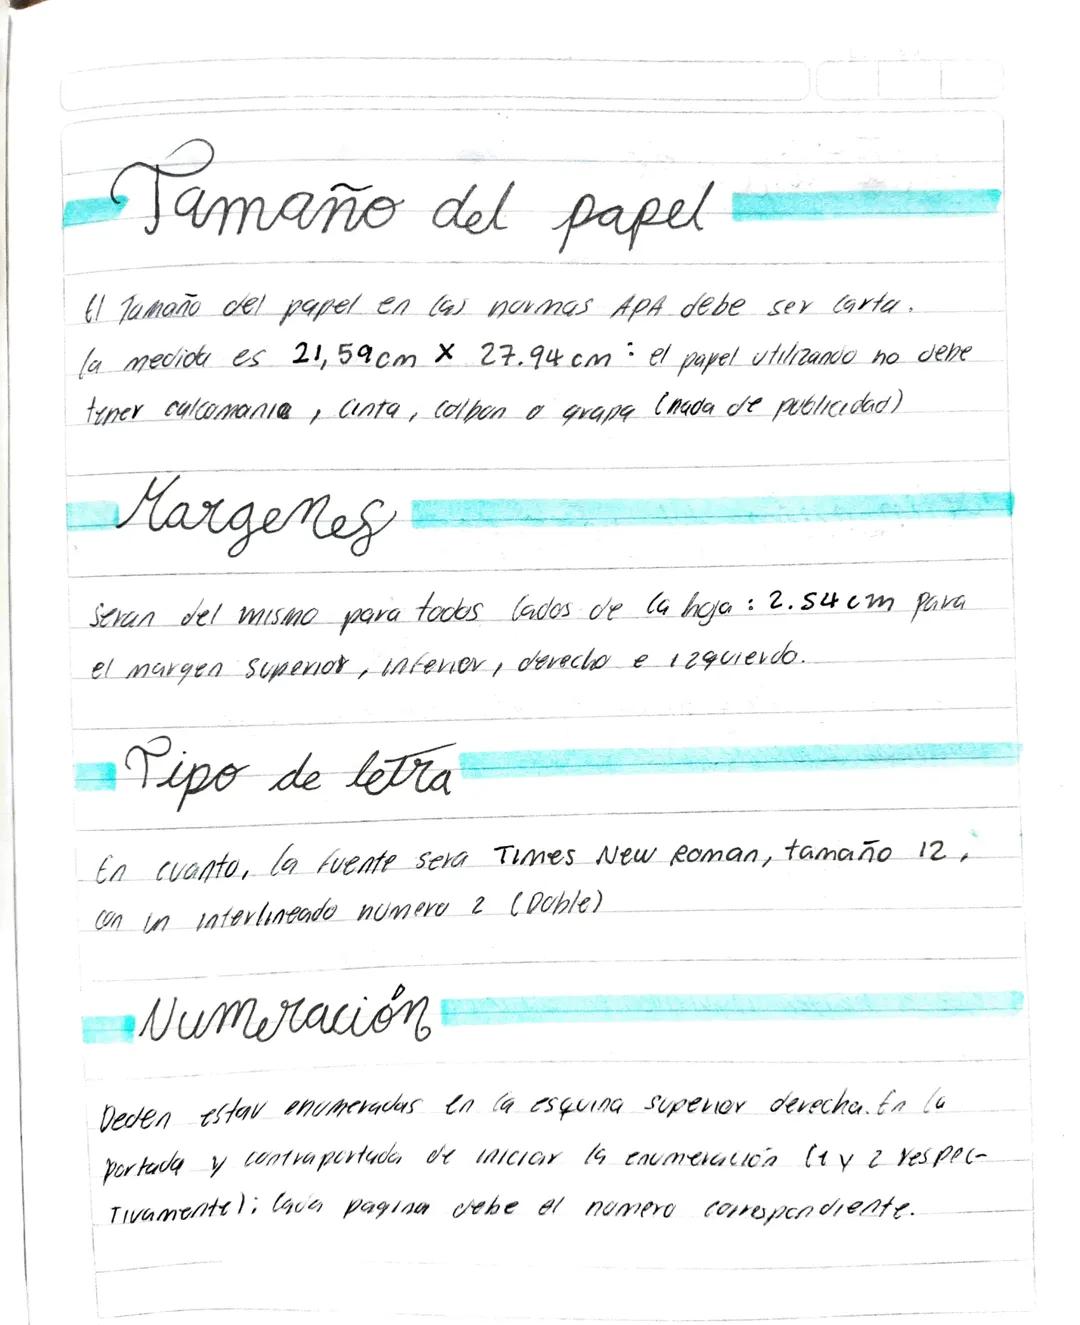 Tamaño del papel
El Tamaño del papel en las normas APA debe ser carta.
la medida es 21,59cm X 27.94 cm : el papel utilizando no debe
tener calcomania , cinta , colbon o grapa (nada de publicidad)
Margenes
seran del mismo para todos lados de la hoja : 2.54 cm para
el margen superior , inferior , derecho e izquierdo.
Tipo de letra
En cuanto, la fuente sera Times New Roman, tamaño 12 ,
con un interlineado numero 2 (Doble)
Numeración
Deden estar enumeradas en la esquina superior derecha. En la
portada y contraportada de iniciar la enumeración (1 y 2 respec-
Tivamente); Cada pagina debe el numero correspondiente.